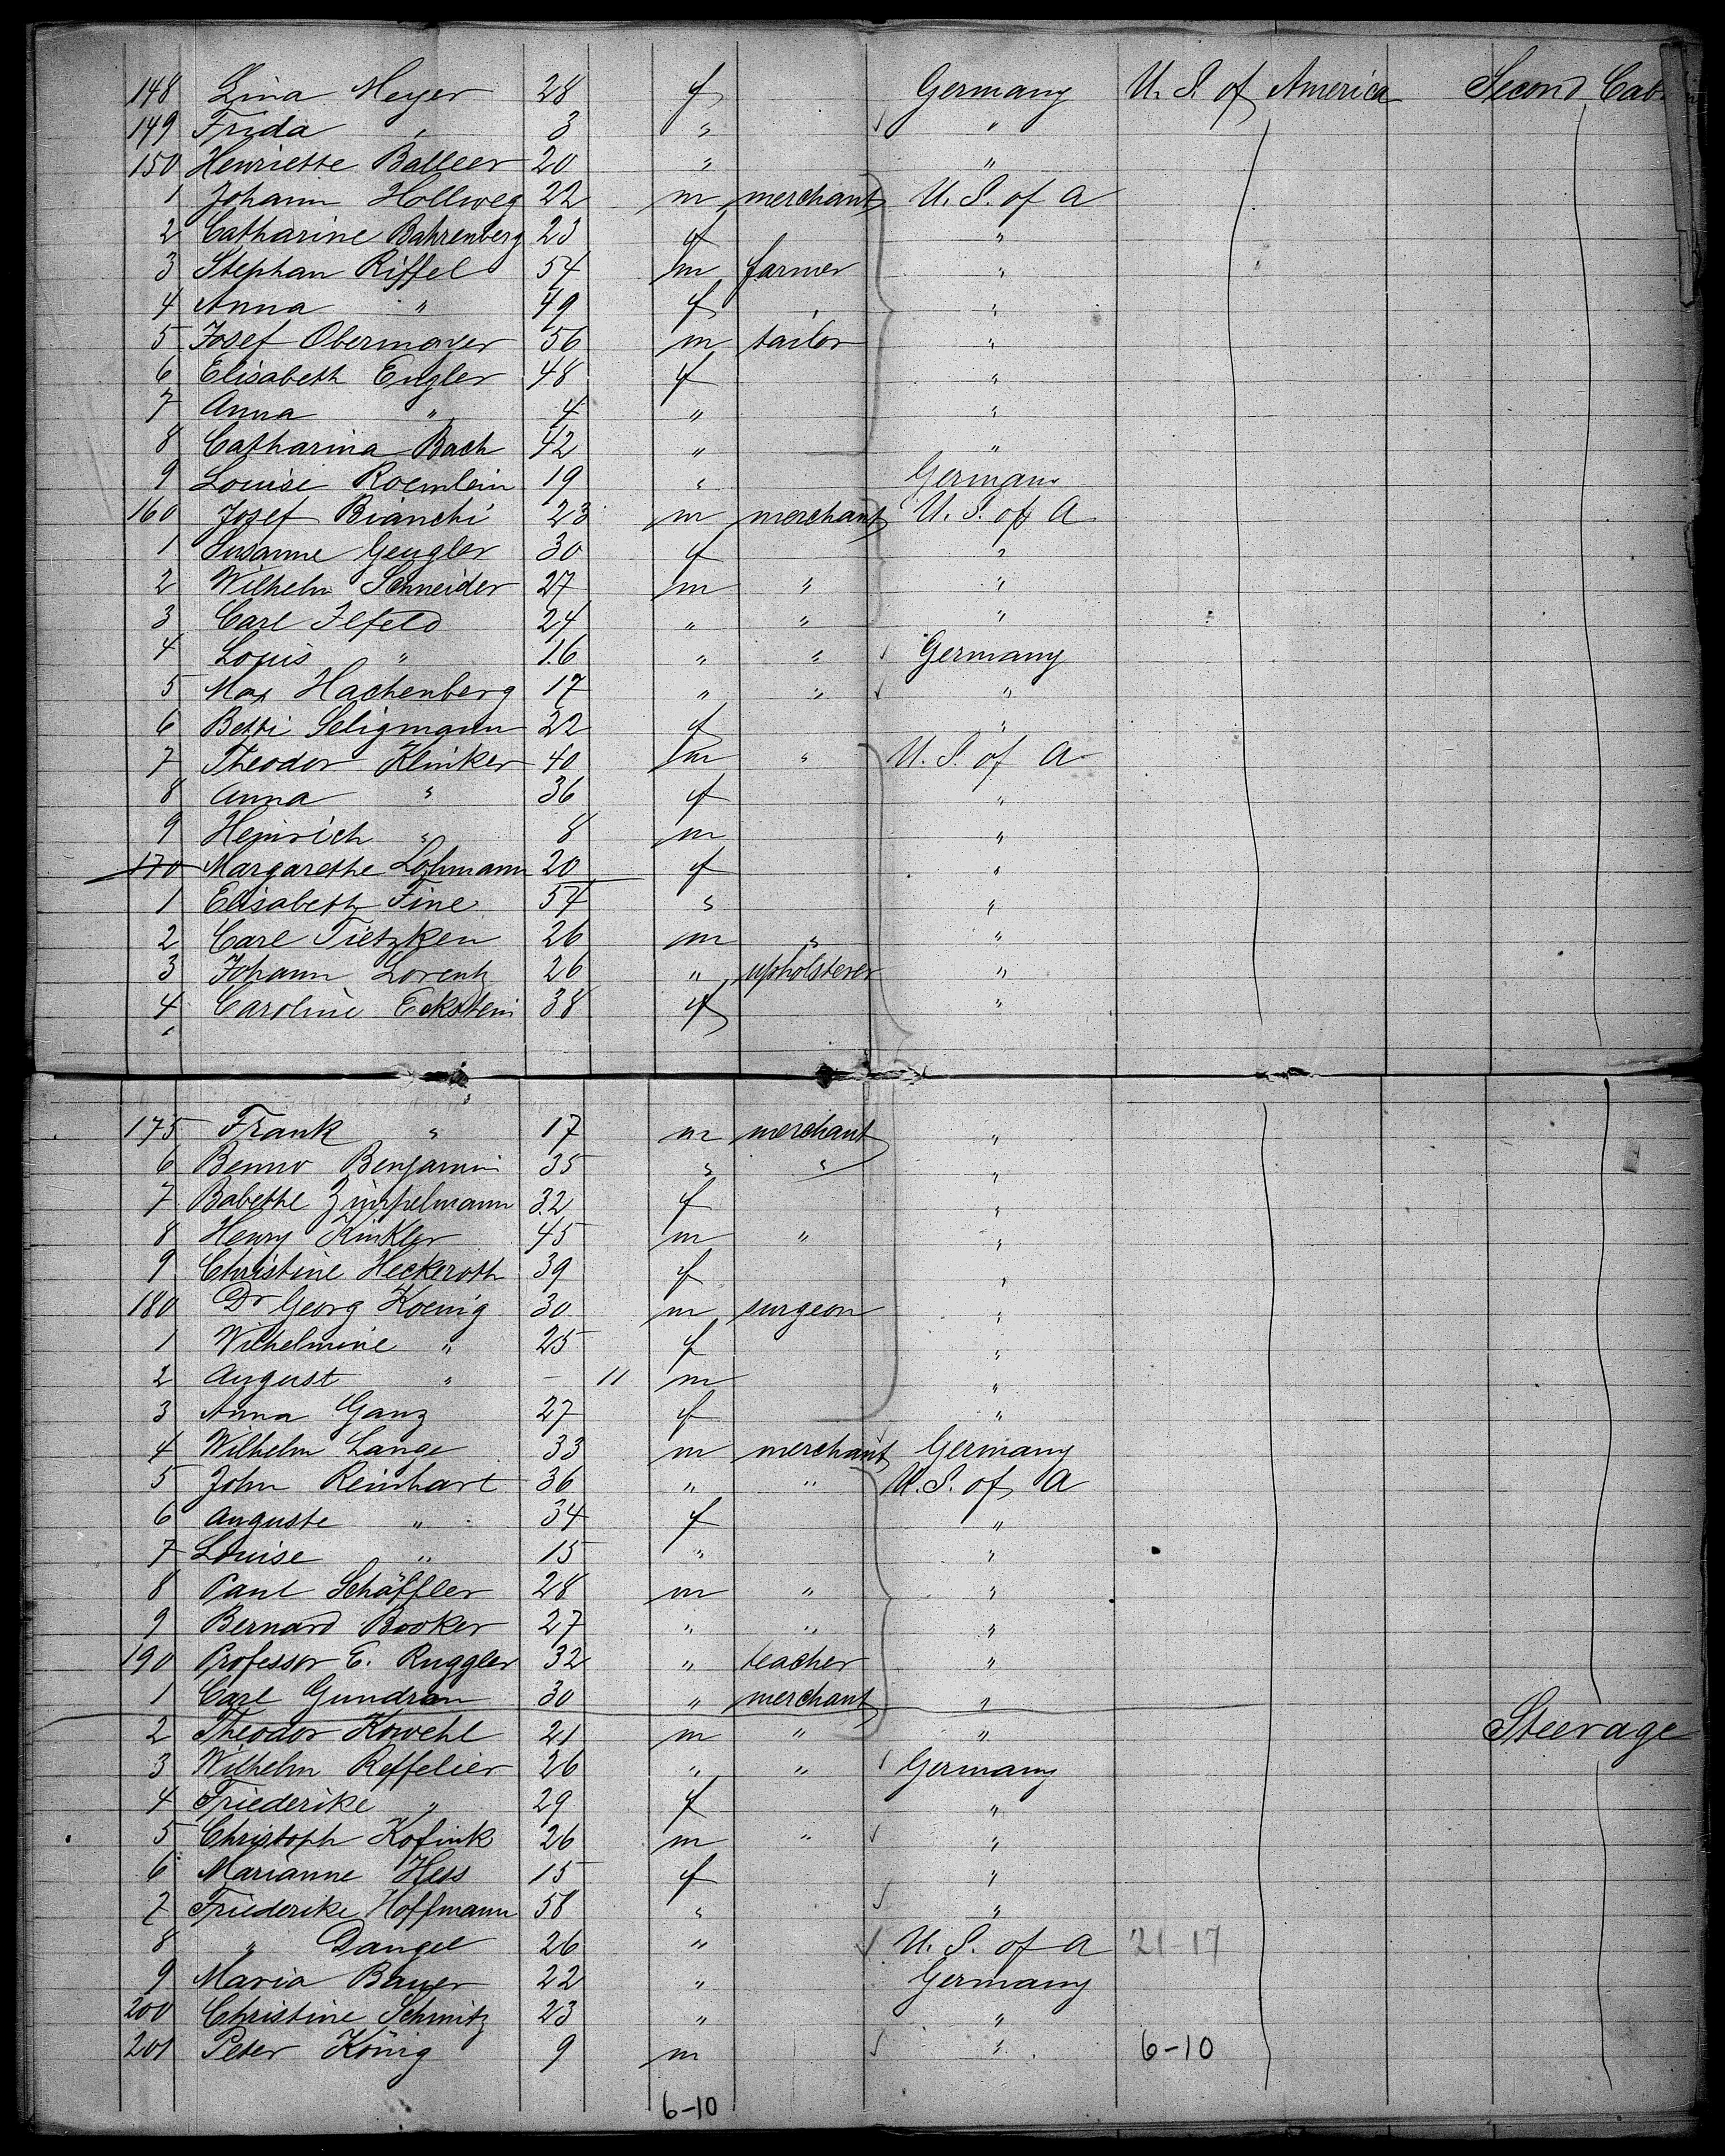 148 Lina Meyer 28 f Germany U. S. of America Second Cab
149 Frida " 3 " "
150 Henriette Balleer 20 " "
1 Johann Hollweg 22 m merchant U. S. of A
2 Catharine Bahrenberg 23 f "
3 Stephan Riffel 54 m farmer "
4 Anna " 49 f "
5 Josef Obermayer 56 m tailor "
6 Elisabeth Engler 48 f "
7 Anna " 4 " "
8 Catharina Bach 42 " "
9 Louise Roemlein 19 " Germany
160 Josef Bianchi 23 m merchant U. S. of A
1 Susanne Gengler 30 f "
2 Wilhelm Schneider 27 m " "
3 Carl Ilfeld 24 " " "
4 Louis " 16 " " Germany
5 Max Hachenberg 17 " " "
6 Betti Seligmann 22 f "
7 Theodor Klinker 40 m " U. S. of A
8 Anna " 36 f "
9 Heinrich " 8 m "
170 Margarethe Lohmann 20 f "
1 Elisabeth Fine 54 " "
2 Carl Tietzken 26 m " "
3 Johann Lorentz 26 " upholsterer "
4 Caroline Eckstein 38 f "
175 Frank " 17 m merchant "
6 Benno Benjamin 35 " " "
7 Babette Zimpelmann 32 f "
8 Henry Kinkler 45 m " "
9 Christine Heckeroth 39 f "
180 Dr Georg Koenig 30 m surgeon "
1 Wilhelmine " 25 f "
2 August " – 11 m "
3 Anna Ganz 27 f "
4 Wilhelm Lange 33 m merchant Germany
5 John Reinhart 36 " " U. S. of A
6 Auguste " 34 f "
7 Louise " 15 " "
8 Paul Schäffler 28 m " "
9 Bernard Booker 27 " " "
190 Professor E. Ruggler 32 " teacher "
1 Carl Gundran 30 " merchant "
2 Theodor Kowehl 21 m " " Steerage
3 Wilhelm Reffelier 26 " " Germany
4 Friederike " 29 f "
5 Christoph Kofink 26 m " "
6 Marianne Hess 15 f "
7 Friederike Hoffmann 58 " "
8 " Dangel 26 " U. S. of A 21-17
9 Maria Bauer 22 " Germany
200 Christine Schmitz 23 " "
201 Peter König 9 m " 6-10
6-10